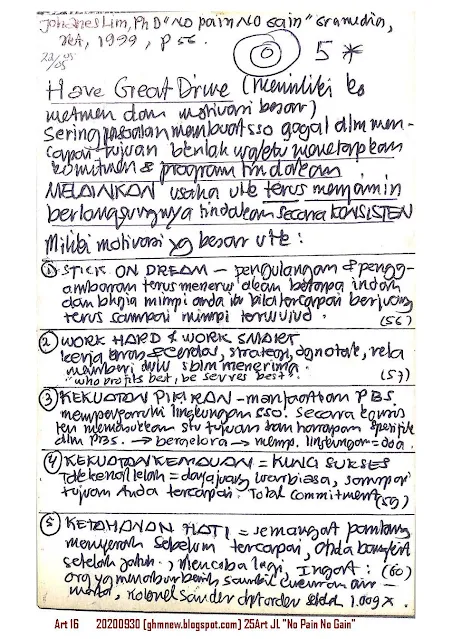 Johanes Lim, Ph.D "No pain No gain" Gramedia,
Jkt, 1999, p 56.
22/05
0 5 *
Have Great Drive (Memiliki ko
mitmen dan motivasi besar)
Sering persoalan membuat sso gagal dlm men-
capai tujuan bknlah waktu menetapkan
komitmen & program tindakan
MELAINKAN usaha utk terus menjamin
berlangsungnya tindakan secara KONSISTEN
Miliki motivasi yg besar utk :
① STICK ON DREAM – pengulangan & pengg-
ambaran terus menerus akan betapa indah
dan bhgia mimpi anda itu bila tercapai berjuang
terus sampai mimpi terwujud. (56)
② WORK HARD & WORK SMART
kerja keras & cerdas, strategi, rela
memberi dulu sblm menerima.
"who profits best, be serves best". (57)
③ KEKUATAN PIKIRAN – manfaatkan PBS.
mempengaruhi lingkungan sso. secara
tujuan dan harapan spesifik
dlm PBS. → bergelora → memp. lingkungan = doa.
④ KEKUATAN KEMAUAN = KUNCI SUKSES
Tdk kenal lelah = daya juang luar biasa, sampai
tujuan Anda tercapai. Total commitment (59)
⑤ KETAHANAN HATI = semangat pantang
menyerah sebelum tercapai, Anda bangkit
setelah jatuh, mencoba lagi, Ingat : (60)
org yg menabur benih sambil cucuran air –
mata, kolonel Sander dpt order stlh 1.009 x.
Art 16 20200930 [ghmnew.blogspot.com] 25Art JL "No Pain No Gain"